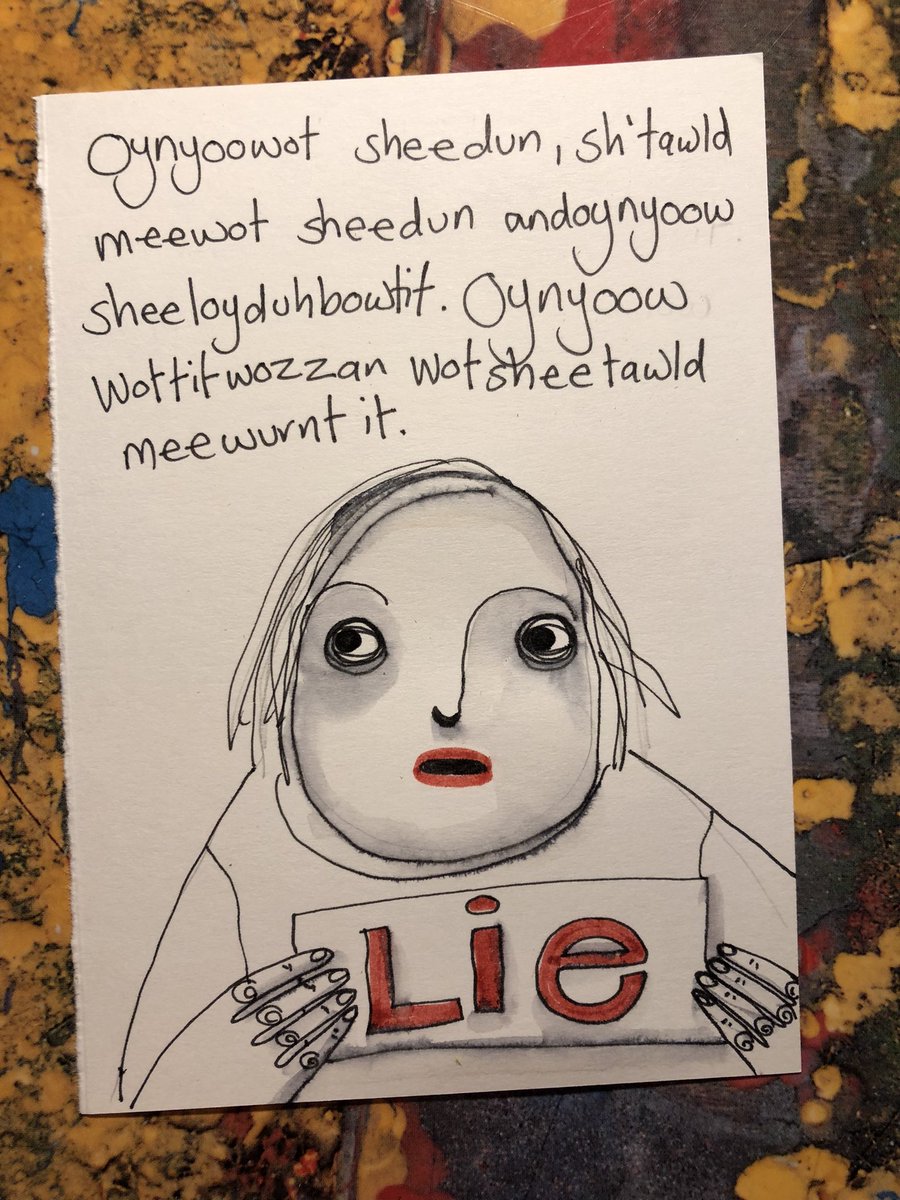 Oynyoowot sheedun, sh'tawld
meewot sheedun andoynyoow
sheeloyduhbowtit. Oynyoow
wottitwozzan wotsheetawld
meewurnt it.
Lie